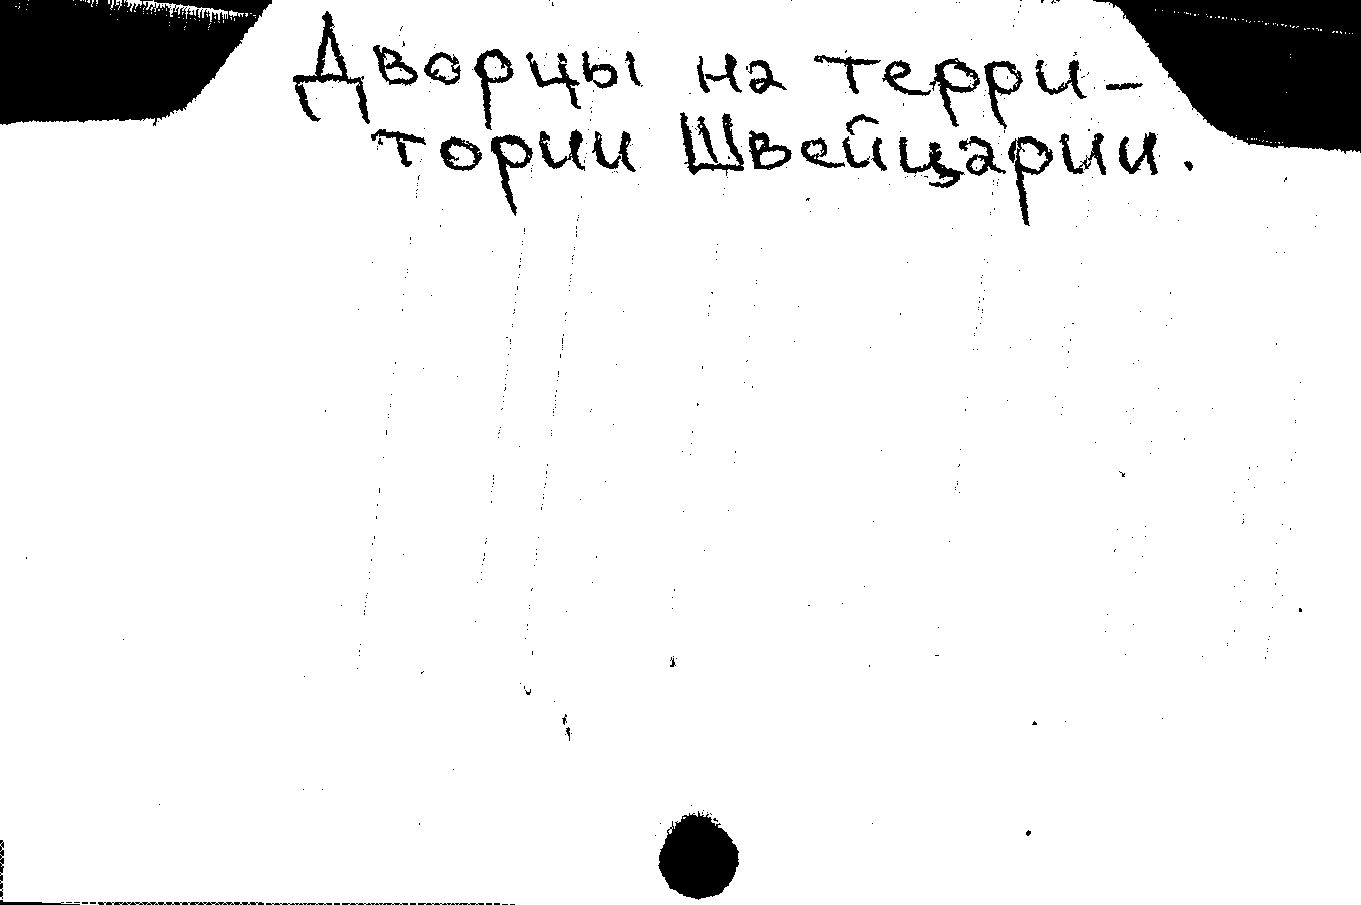 Дворцы на терри-
тории Швейцарии.